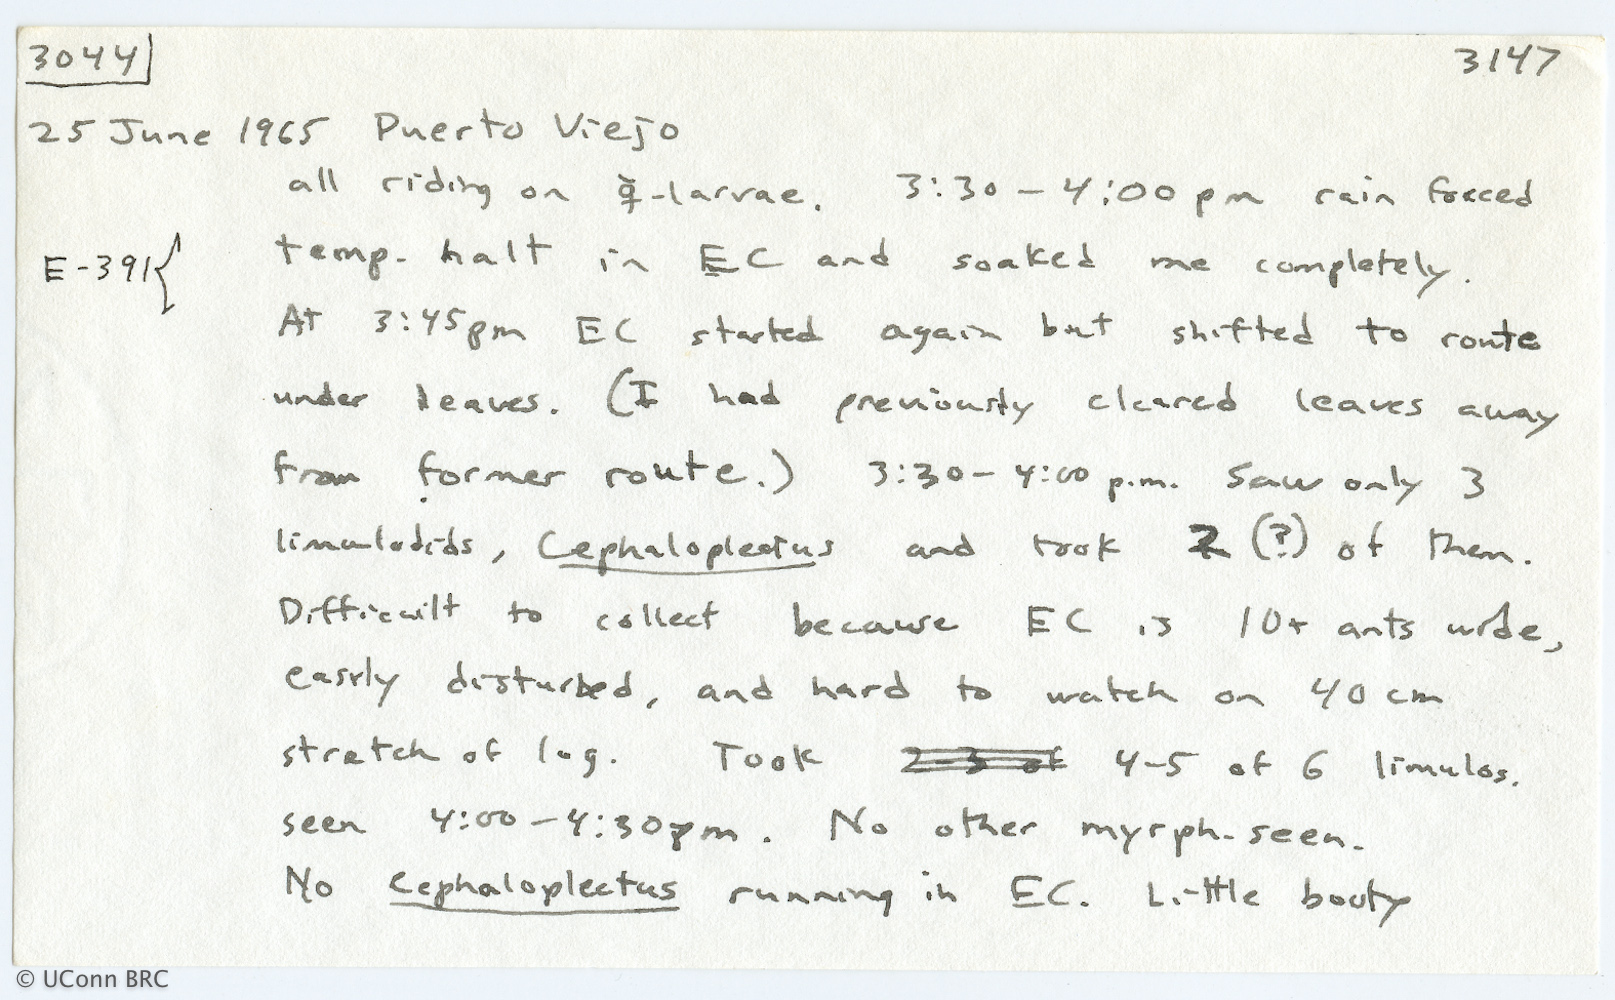 3044 3147
25 June 1965 Puerto Viejo
all riding on -larvae. 3:30-4:00 pm rain forced
E-391{ temp. halt in EC and soaked me completely.
At 3:45pm EC started again but shifted to route
under leaves. (I had previously cleared leaves away
from former route.) 3:30-4:00 p.m. Saw only 3
limulodids, Cephaloplectus and took 2 (?) of them.
Difficult to collect because EC is 10+ ants wide,
easily disturbed, and hard to watch on 40 cm
stretch of log. Took 2-3 of 4-5 of 6 limulos.
seen 4:00-4:30pm. No other myrph. seen.
No Cephaloplectus running in EC. Little booty
© UConn BRC